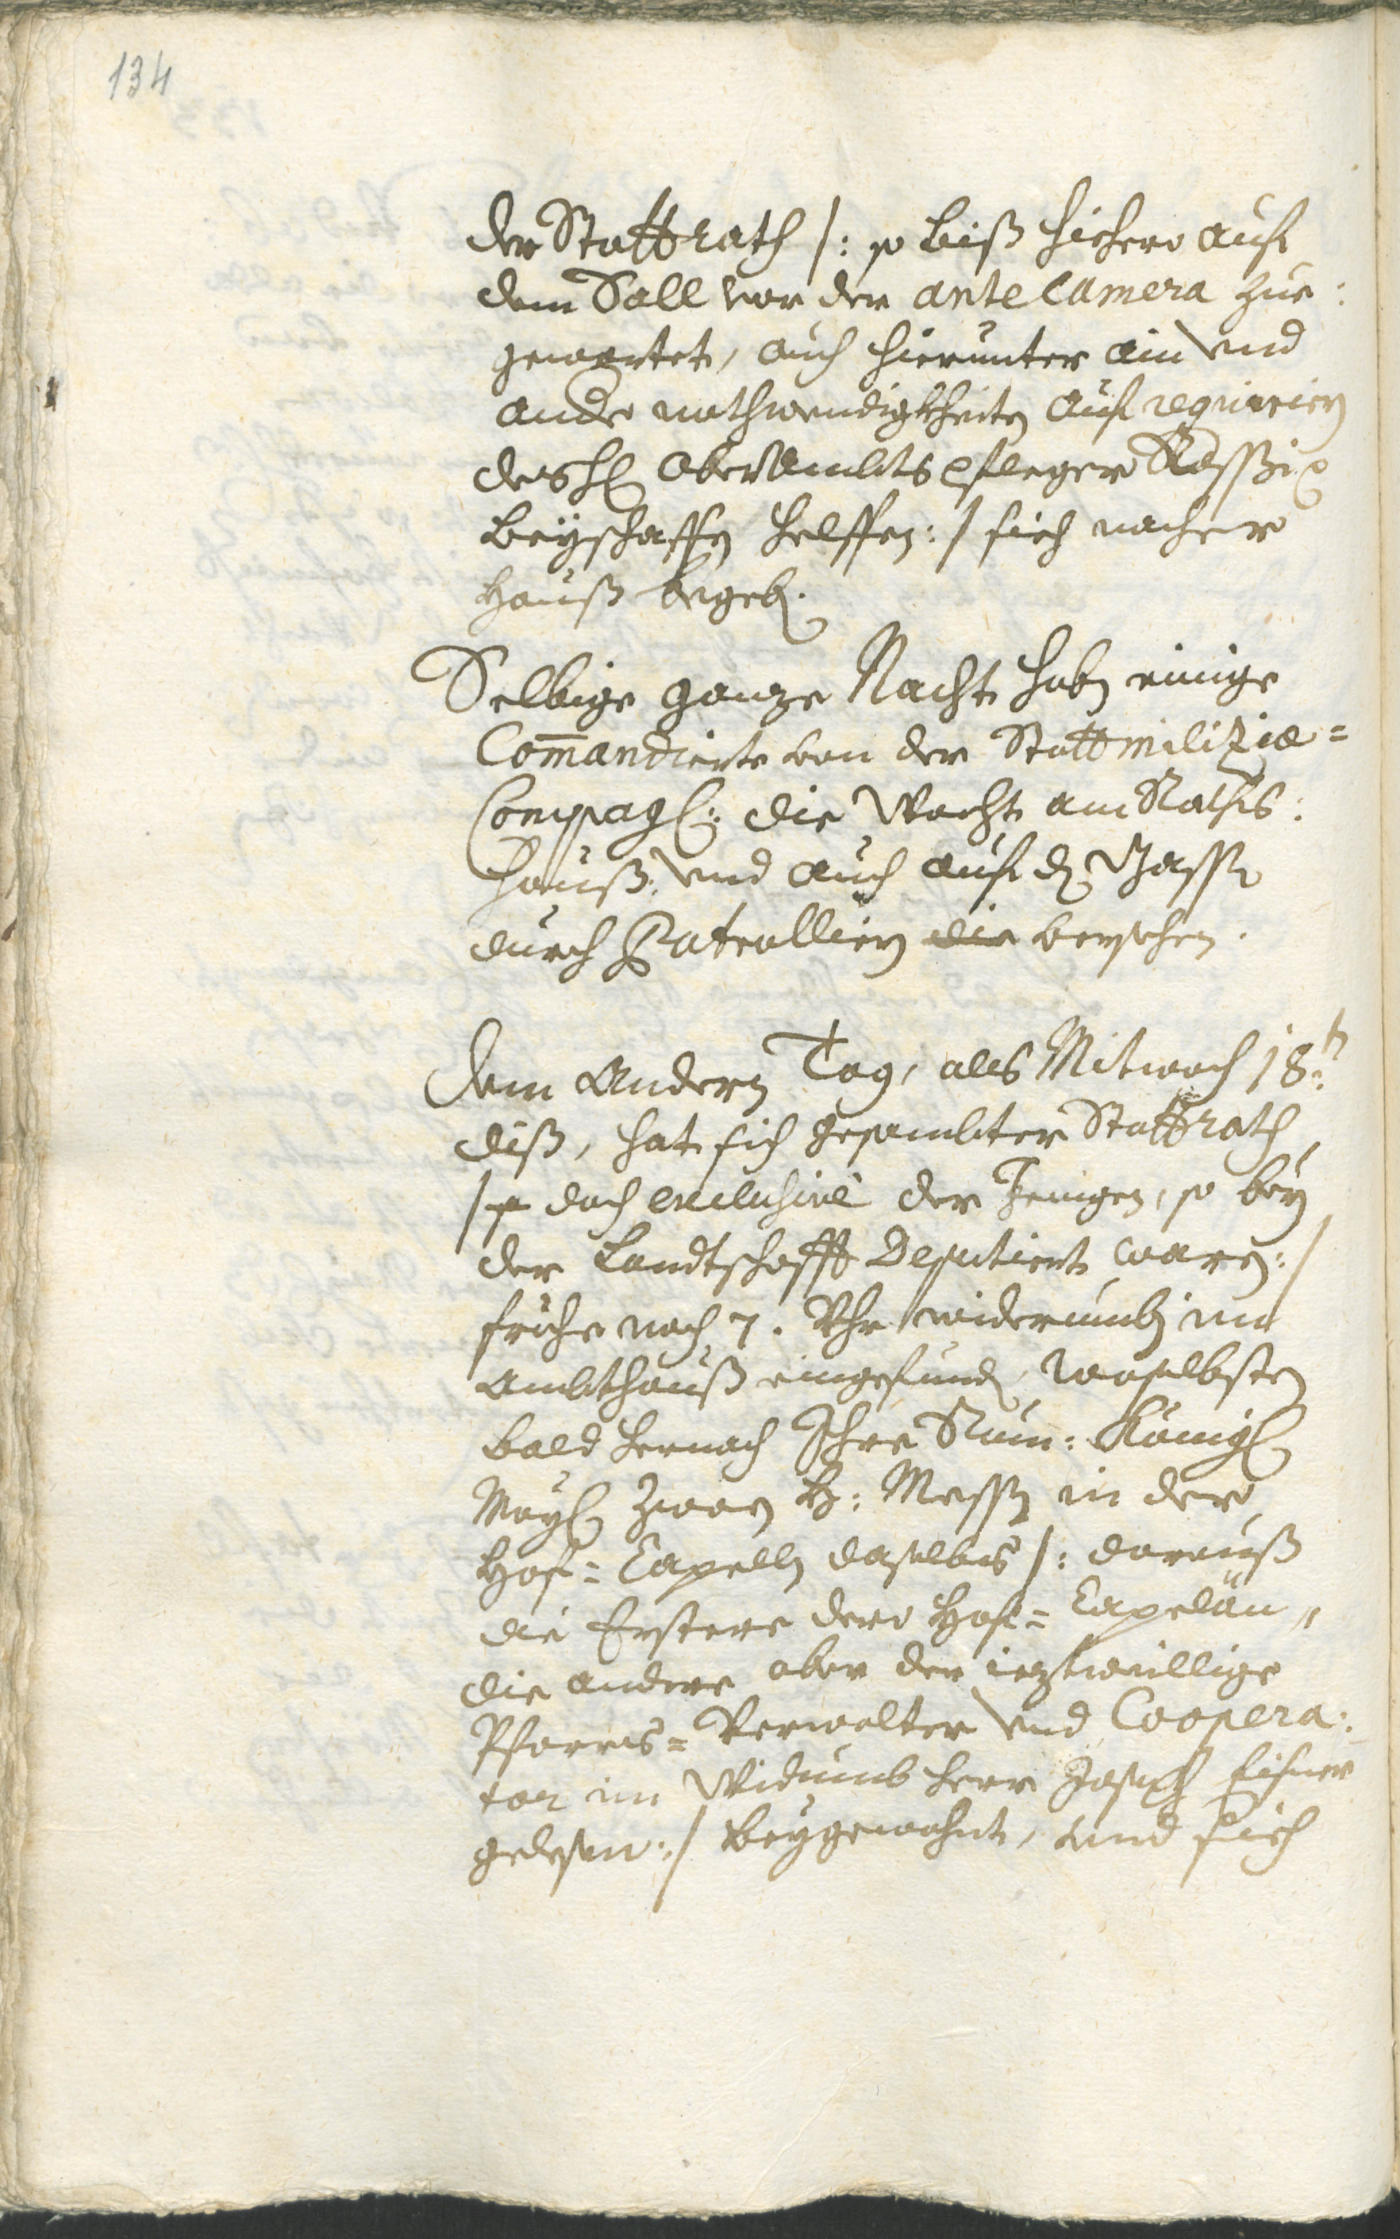 134
der Stattrath /: so biß hiehero auf
dem Sall vor der antecamera zue:
gewartet, auch hierunter ain und
andre nothwendigkheiten auf requirirn
des H. OberAmbtspfleger
beyschaffen helffen :/ sich nacher
Hauß begeb.
Selbige ganze Nacht haben einige
Com̄andierte von der Stattmilizia=
Compagl: die Wacht am Raths:
hauß, und auch auf der Gassn
durch Patrollirn die versehen.
Dem Andern Tag, als Mitwoch 18t.
diß, hat sich gesambter Stattrath
/: doch exclusivè der Jenigen, so bey
der Landtschafft Deputiert waren :/
frühe nach 7. Uhr widerumb im
Ambthauß eingefunden, woselbsten
bald hernach Ihre Röm: Königl
Mayl zwey H: Messen in der
Hof=Capelln daselbs /: darauß
die Erstere dero Hof=Capelän,
die andere aber der ieztweillige
Pfarrs=Verwalter und Coopera:
tor im Widumb herr Joseph
gelesen :/ beygewohnt, und sich